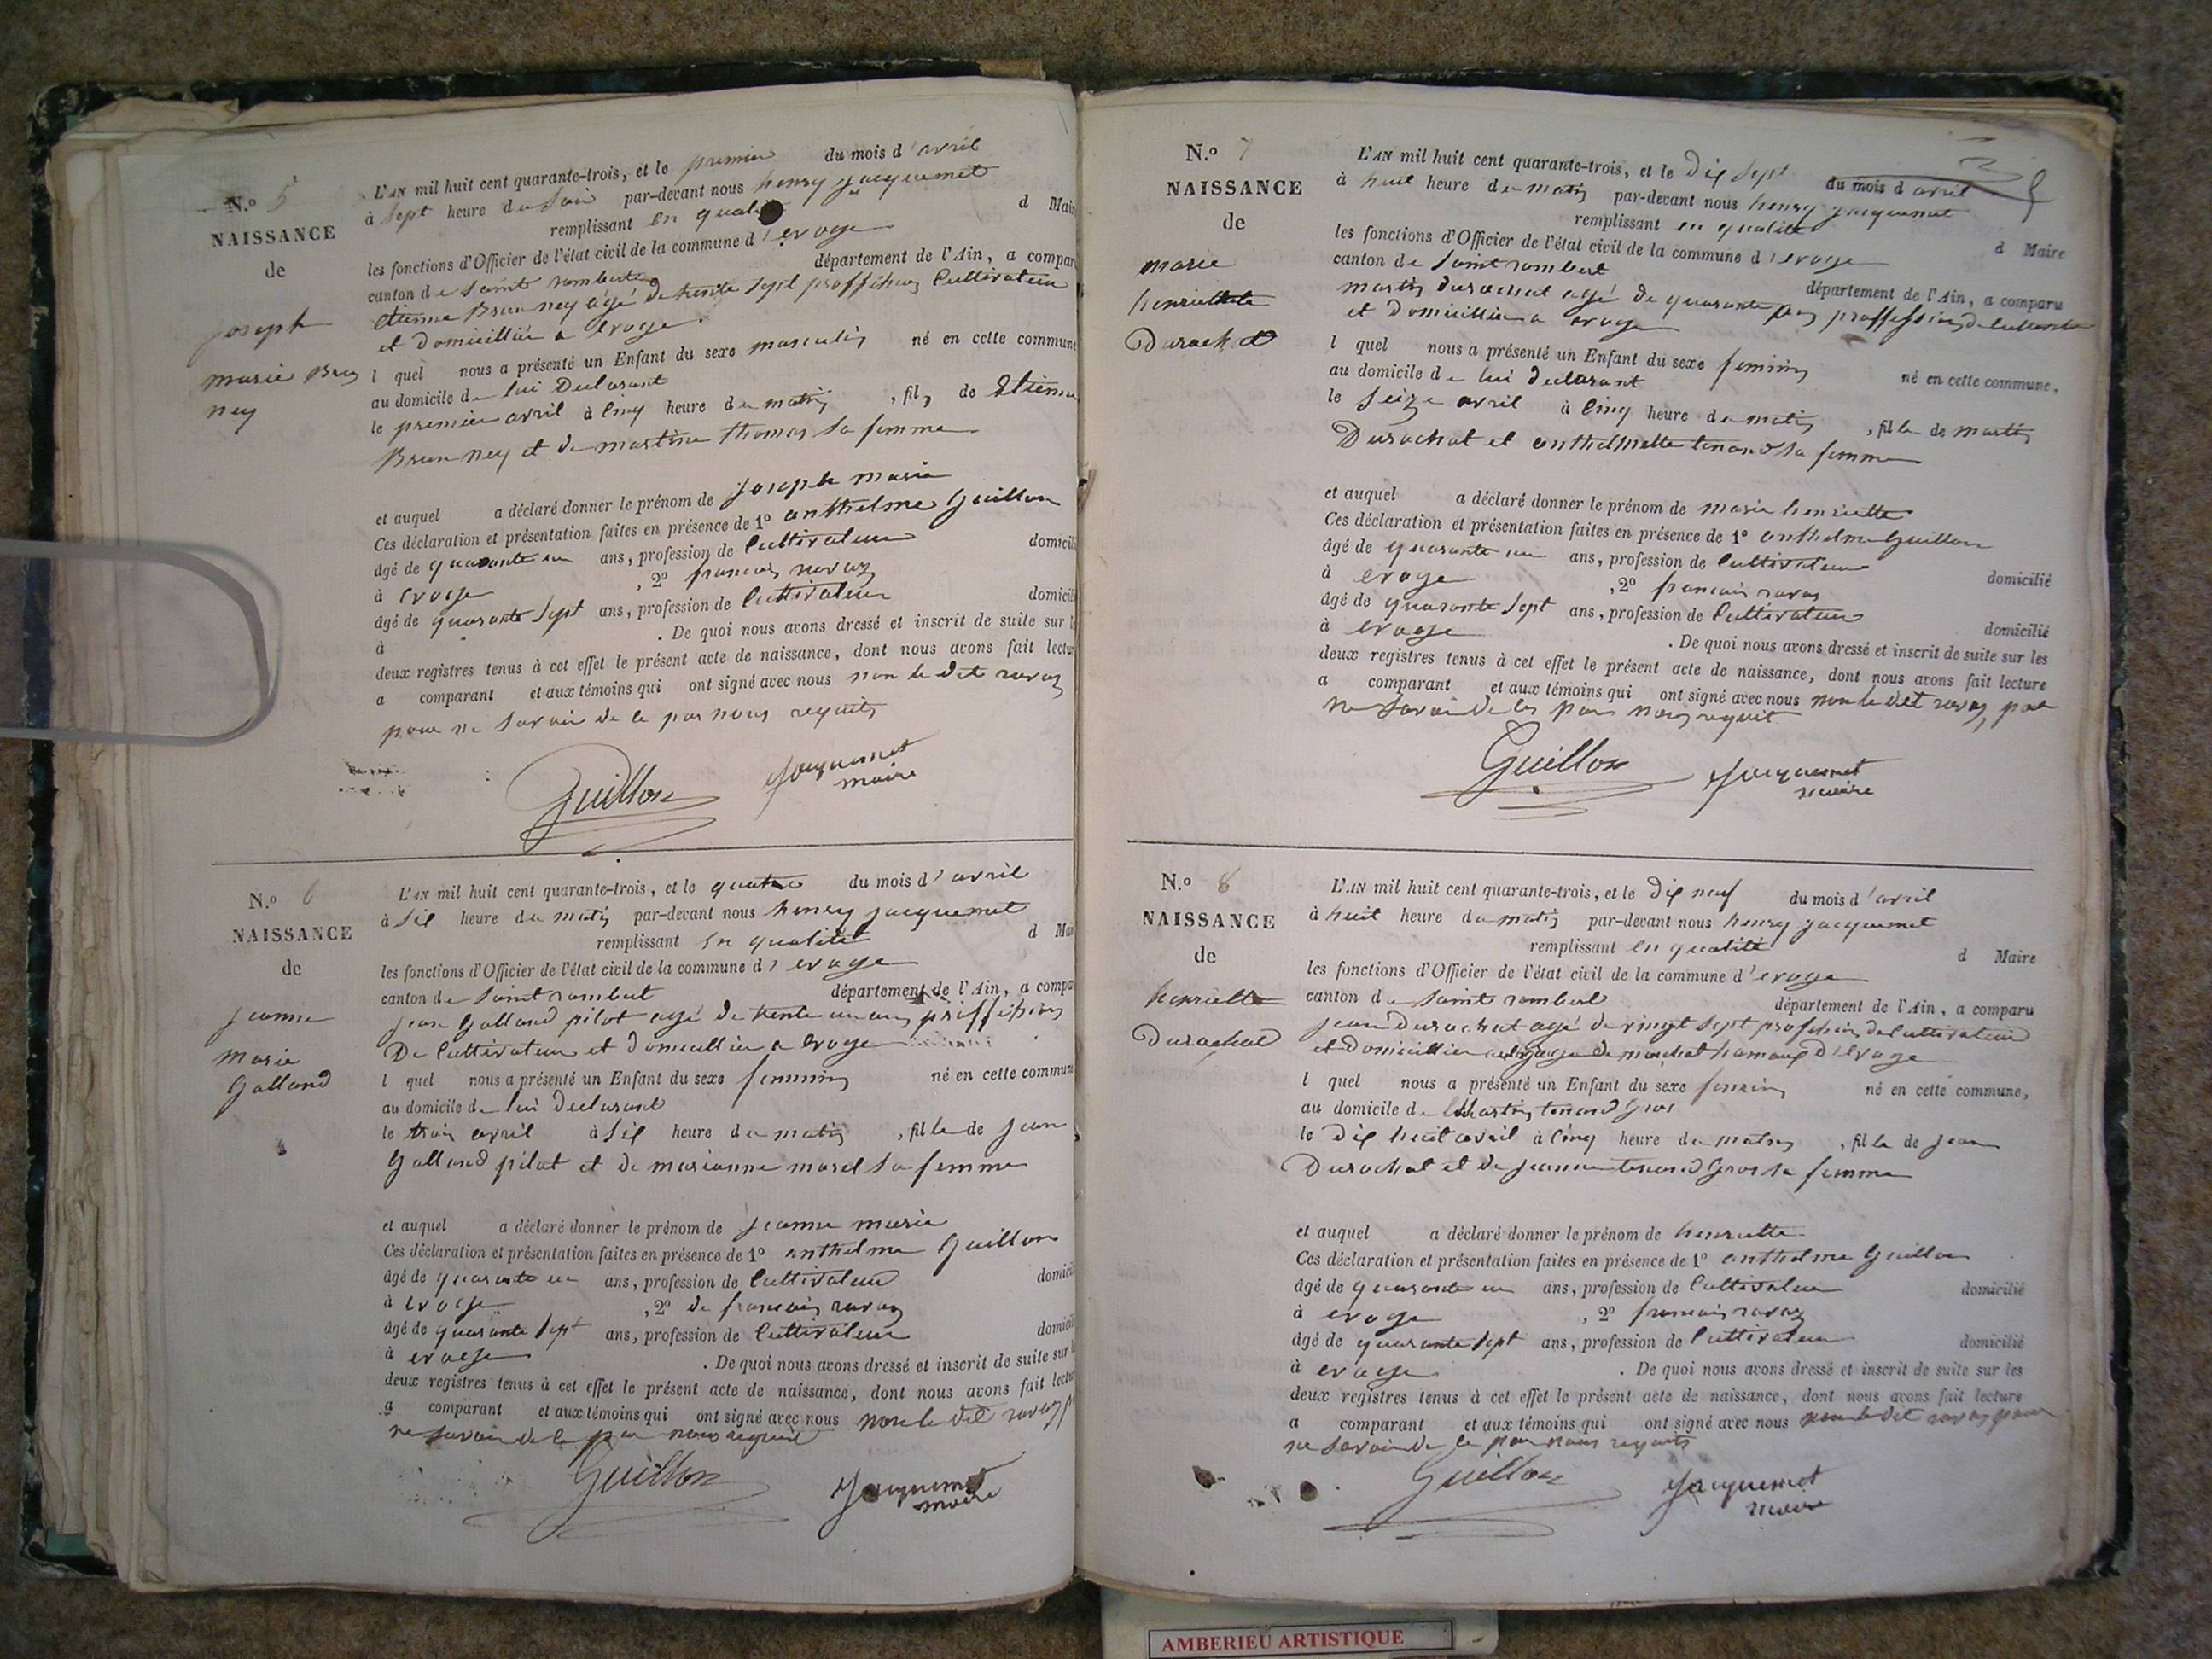 N.o 5
NAISSANCE
de
joseph
marie Brun
ney
L'AN mil huit cent quarante-trois, et le premier du mois d'avril
à Sept heure du Soir par-devant nous henry jacquemet
remplissant en qualité d Mair
les fonctions d'Officier de l'état civil de la commune d'evoge
canton de Saint rambert département de l'Ain, a compar
etienne Brun ney agé de trente Sept proffession Cultivateur
et domicillier a evoge.
l quel nous a présenté un Enfant du sexe masculin né en cette commune
au domicile de lui Declarant
le premier avril à Cinq heure du matin , fils de Etienne
Brun ney et de martine thomas sa femme
et auquel a déclaré donner le prénom de joseph marie
Ces déclaration et présentation faites en présence de 1o anthelme Guillon
âgé de quarante un ans, profession de Cultivateur domicilié
à evoge , 2o francois ravaz
âgé de quarante Sept ans, profession de Cultivateur domicili
à . De quoi nous avons dressé et inscrit de suite sur l
deux registres tenus à cet effet le présent acte de naissance, dont nous avons fait lectur
a comparant et aux témoins qui ont signé avec nous non le dit ravaz
pour ne Savoir de ce par nous requits
Guillon jacquemet
maire
N.o 6
NAISSANCE
de
jeanne
Marie
Galland
L'AN mil huit cent quarante-trois, et le quatre du mois d'avril
à Six heure du matin par-devant nous henry jacquemet
remplissant en qualité d Mai
les fonctions d'Officier de l'état civil de la commune d' evoge
canton de Saint rambert département de l'Ain, a compa
jean Galland pilot agé de trente un ans proffession
De Cultivateur et domicillier a evoge
l quel nous a présenté un Enfant du sexe feminin né en cette commune
au domicile de lui declarant
le trois avril à Six heure du matin , fille de jean
Galland pilot et de marianne morel sa femme
et auquel a déclaré donner le prénom de jeanne marie
Ces déclaration et présentation faites en présence de 1o anthelme Guillon
âgé de quarante un ans, profession de Cultivateur domici
à evoge , 2o de francois ravaz
âgé de quarante Sept ans, profession de Cultivateur domicili
à evoge . De quoi nous avons dressé et inscrit de suite sur l
deux registres tenus à cet effet le présent acte de naissance, dont nous avons fait lectur
a comparant et aux témoins qui ont signé avec nous non le dit ravaz
ne savoir de ce par nous requit
Guillon Jacquemet
maire
N.o 7
NAISSANCE
de
marie
henriette
Durochat
L'AN mil huit cent quarante-trois, et le Dix Sept du mois d avril
à huit heure du matin par-devant nous henry jacquemet
remplissant en qualité d Maire
les fonctions d'Officier de l'état civil de la commune d'evoge
canton de Saint rambert département de l'Ain, a comparu
martin durochat agé de quarante proffession de Cultivateur
et domicillier a evoge
l quel nous a présenté un Enfant du sexe feminin né en cette commune,
au domicile de lui declarant
le Seize avril à Cinq heure du matin , fille de martin
Durochat et anthelmette tenand sa femme
et auquel a déclaré donner le prénom de marie henriette
Ces déclaration et présentation faites en présence de 1o anthelme Guillon
âgé de quarante un ans, profession de Cultivateur domicilié
à evoge , 2o francois ravaz
âgé de quarante Sept ans, profession de Cultivateur domicilié
à evoge . De quoi nous avons dressé et inscrit de suite sur les
deux registres tenus à cet effet le présent acte de naissance, dont nous avons fait lecture
a comparant et aux témoins qui ont signé avec nous non le dit ravaz, pour
ne Savoir de ce par nous requit
Guillon Jacquemet
maire
N.o 8
NAISSANCE
de
henriette
Durochat
L'AN mil huit cent quarante-trois, et le Dix neuf du mois d'avril
à huit heure du matin par-devant nous henry jacquemet
remplissant en qualité d Maire
les fonctions d'Officier de l'état civil de la commune d'evoge
canton de Saint rambert département de l'Ain, a comparu
jean Durochat agé de vingt Sept profession de Cultivateur
et domicillier hamaux D'evoge
l quel nous a présenté un Enfant du sexe feminin né en cette commune,
au domicile de Martin tenand Gros
le Dix huit avril à Cinq heure du matin , fille de jean
Durochat et de jeanne tenand Gros sa femme
et auquel a déclaré donner le prénom de henriette
Ces déclaration et présentation faites en présence de 1o anthelme Guillon
âgé de quarante un ans, profession de Cultivateur domicilié
à evoge , 2o francois ravaz
âgé de quarante Sept ans, profession de Cultivateur domicilié
à evoge . De quoi nous avons dressé et inscrit de suite sur les
deux registres tenus à cet effet le présent acte de naissance, dont nous avons fait lecture
a comparant et aux témoins qui ont signé avec nous non le dit ravaz pour
ne Savoir de ce par nous requits
Guillon Jacquemet
maire
AMBERIEU ARTISTIQUE